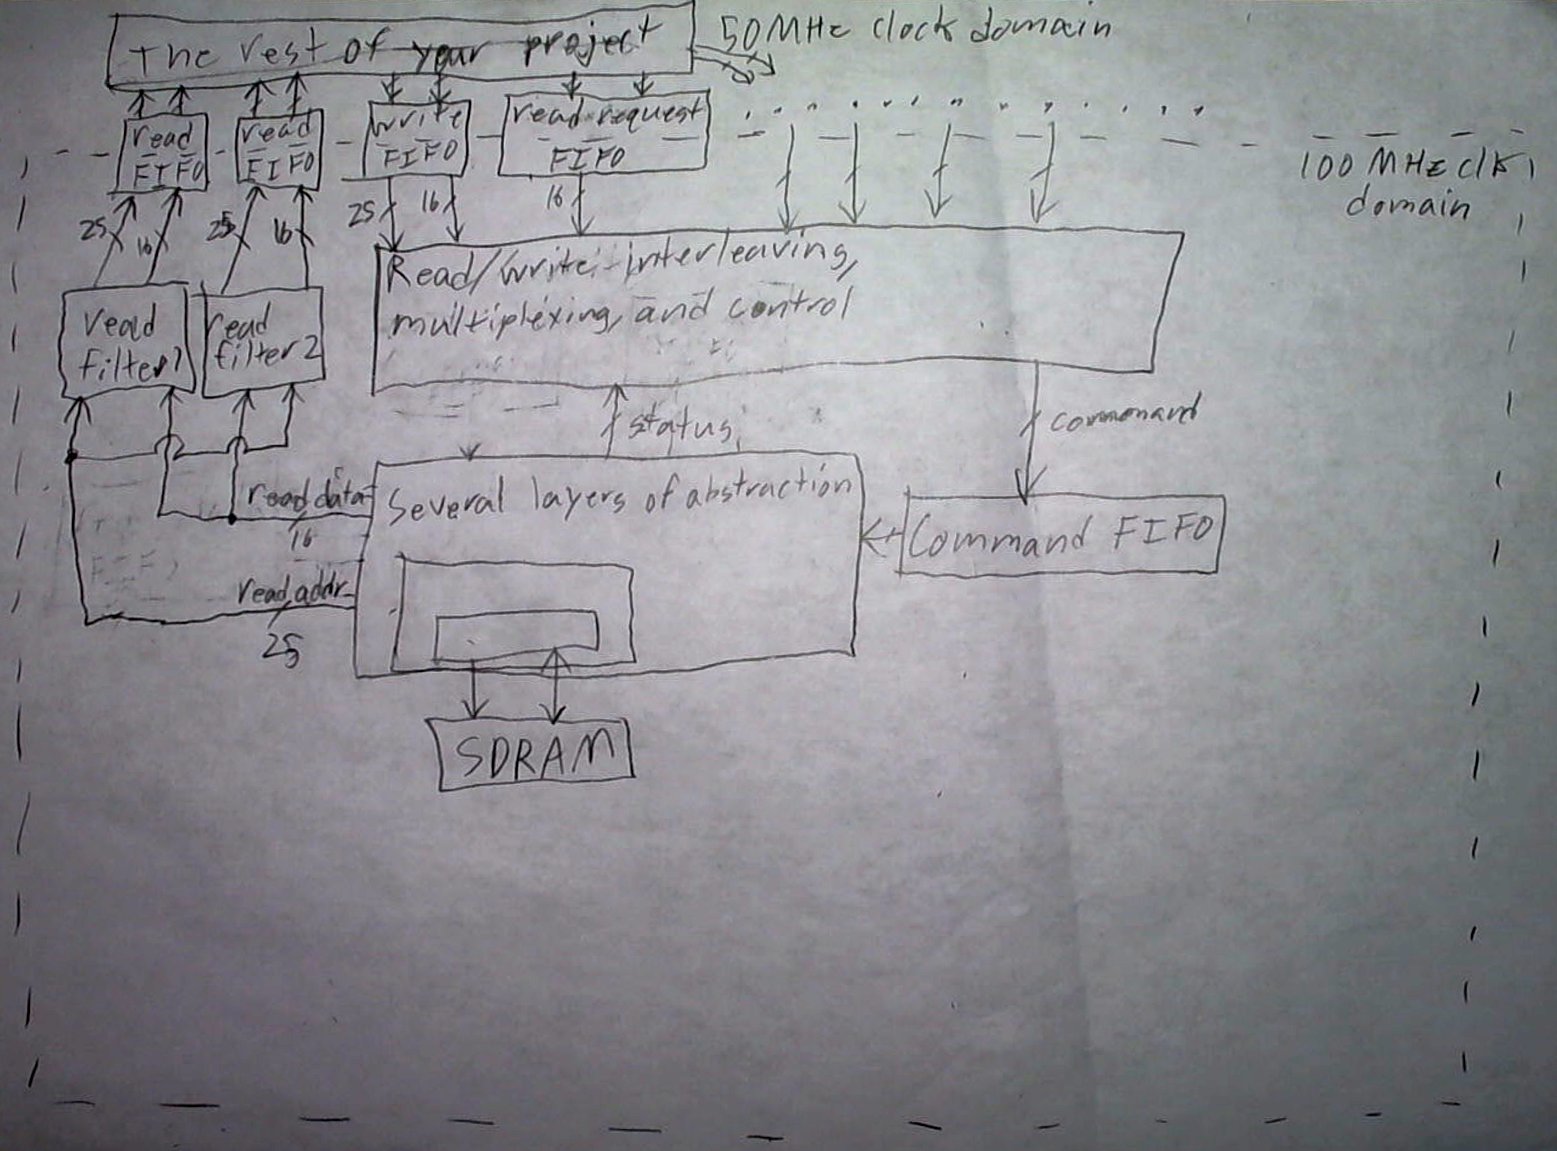 The rest of your project
50MHz clock domain
read
FIFO
read
FIFO
write
FIFO
read request
FIFO
100 MHz clk
domain
25
16
25
16
25
16
16
Read/write interleaving,
multiplexing, and control
read
filter 1
read
filter 2
status
command
read data
16
Several layers of abstraction
Command FIFO
read addr
25
SDRAM